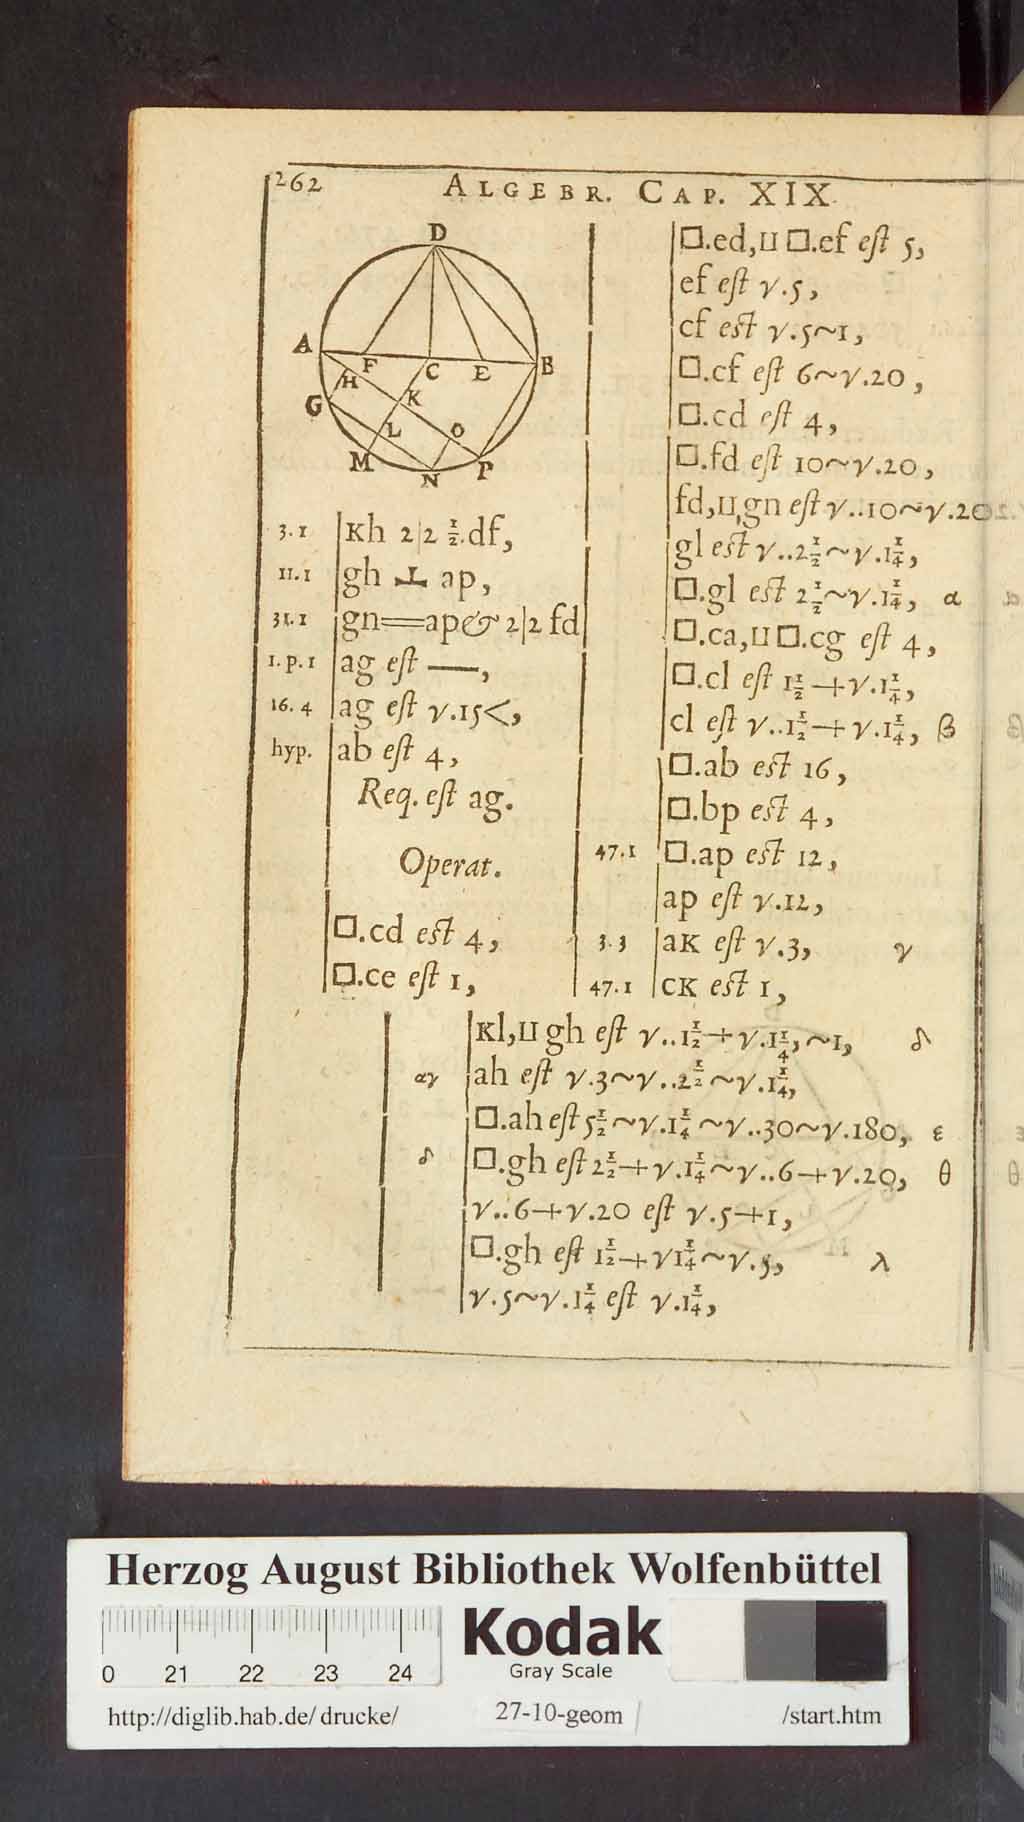 262 ALGEBR. CAP. XIX
D
A F C E B
H K
G L O
M N P
3.1 Kh 2|2 ½.df,
11.1 gh ⊥ ap,
31.1 gn==ap& 2|2 fd
1.p.1 ag est —,
16.4 ag est γ.15<,
hyp. ab est 4,
Req. est ag.
Operat.
□.cd est 4,
□.ce est 1,
□.ed,⊔ □.ef est 5,
ef est γ.5,
cf est γ.5~1,
□.cf est 6~γ.20,
□.cd est 4,
□.fd est 10~γ.20,
fd,⊔,gn est γ..10~γ.20
gl est γ..2½~γ.1¼,
□.gl est 2½~γ.1¼, α
□.ca,⊔□.cg est 4,
□.cl est 1½+γ.1¼,
cl est γ..1½+γ.1¼, β
□.ab est 16,
□.bp est 4,
47.1 □.ap est 12,
ap est γ.12,
3.3 aK est γ.3, γ
47.1 cK est 1,
Kl,⊔gh est γ..1½+γ.1¼,~1, δ
αγ ah est γ.3~γ..2½~γ.1¼,
□.ah est 5½~γ.1¼~γ..30~γ.180, ε
δ □.gh est 2½+γ.1¼~γ..6+γ.20, θ
γ..6+γ.20 est γ.5+1,
□.gh est 1½+γ1¼~γ.5, λ
γ.5~γ.1¼ est γ.1¼,
Herzog August Bibliothek Wolfenbüttel
0 21 22 23 24
Kodak
Gray Scale
http://diglib.hab.de/drucke/ 27-10-geom /start.htm